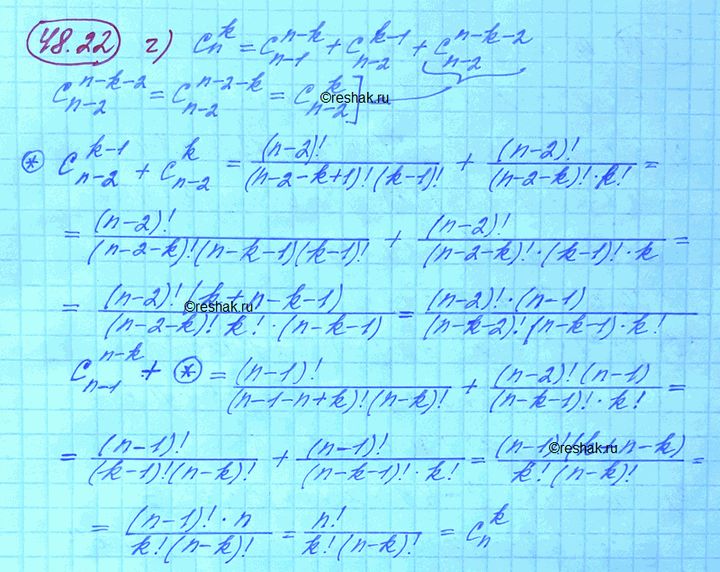 48.22 г) C_n^k = C_{n-1}^{n-k} + C_{n-2}^{k-1} + C_{n-2}^{n-k-2}
C_{n-2}^{n-k-2} = C_{n-2}^{n-2-k} = C_{n-2}^k ]
©reshak.ru
* C_{n-2}^{k-1} + C_{n-2}^k = (n-2)!/((n-2-k+1)!(k-1)!) + (n-2)!/((n-2-k)!·k!) =
= (n-2)!/((n-2-k)!(n-k-1)(k-1)!) + (n-2)!/((n-2-k)!·(k-1)!·k) =
= (n-2)!(k+n-k-1)/((n-2-k)! k!·(n-k-1)) = (n-2)!·(n-1)/((n-k-2)!(n-k-1)·k!)
©reshak.ru
C_{n-1}^{n-k} + * = (n-1)!/((n-1-n+k)!(n-k)!) + (n-2)!(n-1)/((n-k-1)!·k!) =
= (n-1)!/((k-1)!(n-k)!) + (n-1)!/((n-k-1)!·k!) = (n-1)!(k+n-k)/(k!(n-k)!) =
©reshak.ru
= (n-1)!·n/(k!(n-k)!) = n!/(k!(n-k)!) = C_n^k